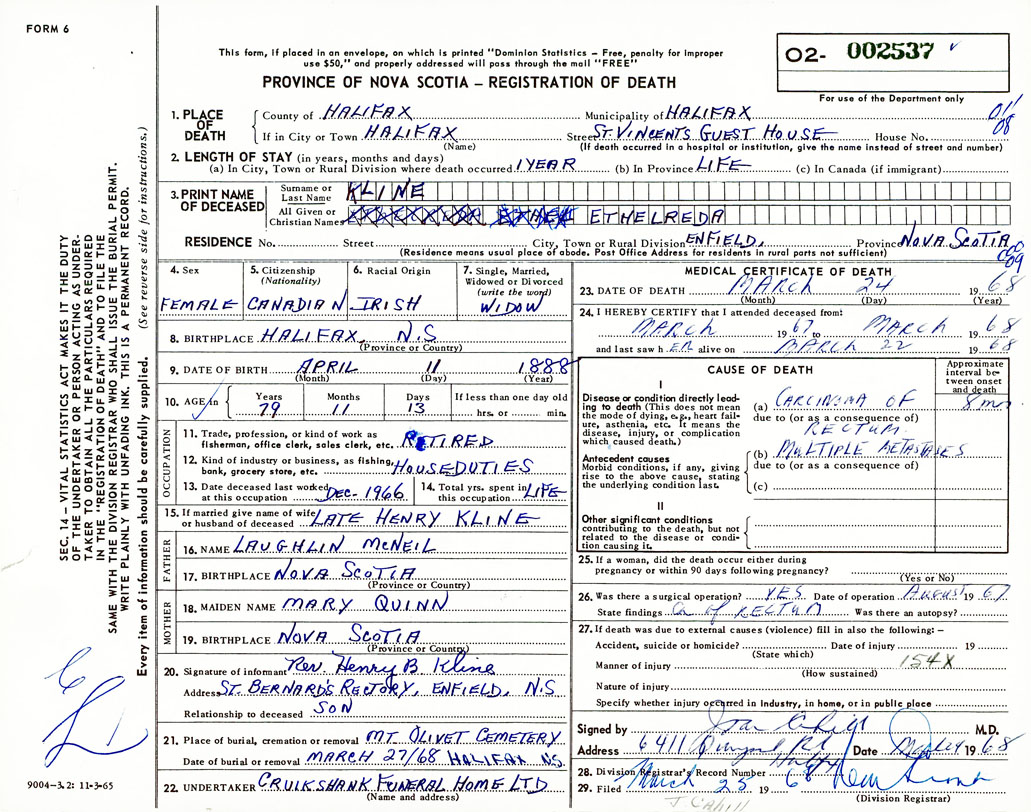 FORM 6
This form, if placed in an envelope, on which is printed "Dominion Statistics – Free, penalty for improper
use $50," and properly addressed will pass through the mail "FREE"
PROVINCE OF NOVA SCOTIA – REGISTRATION OF DEATH
02- 002537
For use of the Department only
SEC. 14 – VITAL STATISTICS ACT MAKES IT THE DUTY
OF THE UNDERTAKER OR PERSON ACTING AS UNDER-
TAKER TO OBTAIN ALL THE PARTICULARS REQUIRED
IN THE "REGISTRATION OF DEATH" AND TO FILE THE
SAME WITH THE DIVISION REGISTRAR WHO SHALL ISSUE THE BURIAL PERMIT.
WRITE PLAINLY WITH UNFADING INK. THIS IS A PERMANENT RECORD.
Every item of information should be carefully supplied. (See reverse side for instructions.)
1. PLACE OF DEATH
County of HALIFAX Municipality of HALIFAX
If in City or Town HALIFAX Street ST VINCENTS GUEST HOUSE House No.
(Name) (If death occurred in a hospital or institution, give the name instead of street and number)
01/
08
2. LENGTH OF STAY (in years, months and days)
(a) In City, Town or Rural Division where death occurred 1 YEAR (b) In Province LIFE (c) In Canada (if immigrant)
3. PRINT NAME OF DECEASED
Surname or Last Name KLINE
All Given or Christian Names ETHELREDA
RESIDENCE No. Street City, Town or Rural Division ENFIELD, Province NOVA SCOTIA
(Residence means usual place of abode. Post Office Address for residents in rural parts not sufficient)
09
4. Sex
FEMALE
5. Citizenship
(Nationality)
CANADIAN
6. Racial Origin
IRISH
7. Single, Married,
Widowed or Divorced
(write the word)
WIDOW
8. BIRTHPLACE HALIFAX, N.S
(Province or Country)
9. DATE OF BIRTH APRIL 11 1888
(Month) (Day) (Year)
10. AGE in Years 79 Months 11 Days 13 If less than one day old
hrs. or min.
OCCUPATION
11. Trade, profession, or kind of work as
fisherman, office clerk, sales clerk, etc. RETIRED
12. Kind of industry or business, as fishing,
bank, grocery store, etc. HOUSEDUTIES
13. Date deceased last worked
at this occupation DEC- 1966
14. Total yrs. spent in
this occupation LIFE
15. If married give name of wife
or husband of deceased LATE HENRY KLINE
FATHER
16. NAME LAUGHLIN MCNEIL
17. BIRTHPLACE NOVA SCOTIA
(Province or Country)
MOTHER
18. MAIDEN NAME MARY QUINN
19. BIRTHPLACE NOVA SCOTIA
(Province or Country)
20. Signature of informant Rev. Henry B. Kline
Address ST. BERNARD'S RECTORY, ENFIELD, N.S
Relationship to deceased SON
21. Place of burial, cremation or removal MT OLIVET CEMETERY
Date of burial or removal MARCH 27/68 HALIFAX N.S.
22. UNDERTAKER CRUIKSHANK FUNERAL HOME LTD
(Name and address)
9004-3.2: 11-3-65
MEDICAL CERTIFICATE OF DEATH
23. DATE OF DEATH MARCH 24 1968
(Month) (Day) (Year)
24. I HEREBY CERTIFY that I attended deceased from:
MARCH 1967 to MARCH 1968
and last saw h ER alive on MARCH 22 1968
CAUSE OF DEATH
Approximate
interval be-
tween onset
and death
I
Disease or condition directly lead-
ing to death (This does not mean
the mode of dying, e.g., heart fail-
ure, asthenia, etc. It means the
disease, injury, or complication
which caused death.)
(a) CARCINOMA OF 8 mos
due to (or as a consequence of)
RECTUM
Antecedent causes
Morbid conditions, if any, giving
rise to the above cause, stating
the underlying condition last.
(b) MULTIPLE METASTASES
due to (or as a consequence of)
(c)
II
Other significant conditions
contributing to the death, but not
related to the disease or condi-
tion causing it.
25. If a woman, did the death occur either during
pregnancy or within 90 days following pregnancy?
(Yes or No)
26. Was there a surgical operation? YES Date of operation AUGUST 1967
State findings Ca of RECTUM Was there an autopsy?
27. If death was due to external causes (violence) fill in also the following: –
Accident, suicide or homicide? Date of injury 19
(State which)
154X
Manner of injury
(How sustained)
Nature of injury
Specify whether injury occurred in industry, in home, or in public place
Signed by M.D.
Address 6411 Date 1968
28. Division Registrar's Record Number
29. Filed March 25 1968
(Division Registrar)
J Cahill